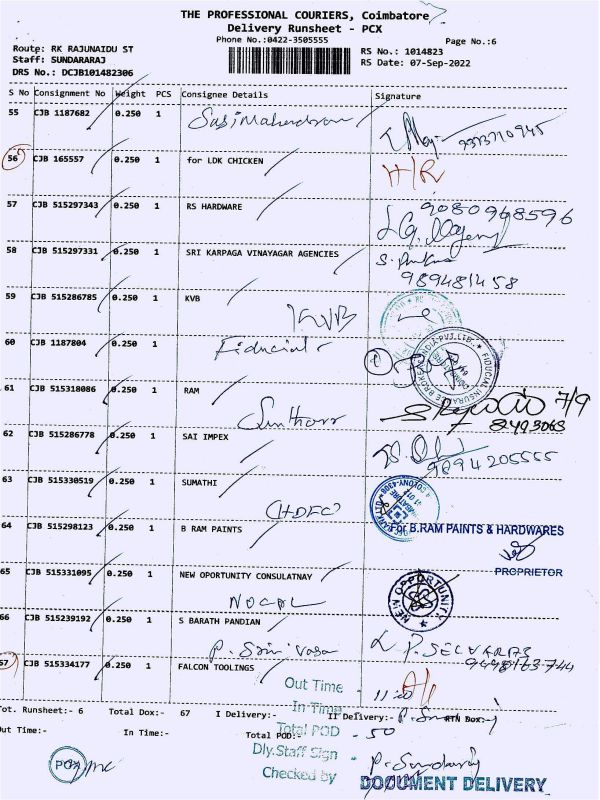 THE PROFESSIONAL COURIERS, Coimbatore
Delivery Runsheet - PCX
Phone No.:0422-3505555
Page No.:6
Route: RK RAJUNAIDU ST
RS No.: 1014823
Staff: SUNDARARAJ
RS Date: 07-Sep-2022
DRS No.: DCJB101482306
S No Consignment No Weight PCS Consignee Details Signature
55 CJB 1187682 0.250 1
56 CJB 165557 0.250 1 for LDK CHICKEN H/R
57 CJB 515297343 0.250 1 RS HARDWARE 9080968596
58 CJB 515297331 0.250 1 SRI KARPAGA VINAYAGAR AGENCIES
989481458
59 CJB 515286785 0.250 1 KVB
KVB
60 CJB 1187804 0.250 1 Fiducial
61 CJB 515318086 0.250 1 RAM
7/9
62 CJB 515286778 0.250 1 SAI IMPEX
9894205555
63 CJB 515330519 0.250 1 SUMATHI
HDFC
64 CJB 515298123 0.250 1 B RAM PAINTS
For B.RAM PAINTS & HARDWARES
PROPRIETOR
65 CJB 515331095 0.250 1 NEW OPORTUNITY CONSULATNAY
NEW OPPORTUNITY
66 CJB 515239192 0.250 1 S BARATH PANDIAN
P. SELVARAJ
67 CJB 515334177 0.250 1 FALCON TOOLINGS
Out Time - 11:00
In Time -
Tot. Runsheet:- 6 Total Dox:- 67 I Delivery:- II Delivery:- RTN Dox:-
Total POD - 50
Out Time:- In Time:- Total POD:-
Dly.Staff Sign -
Checked by
DOCUMENT DELIVERY